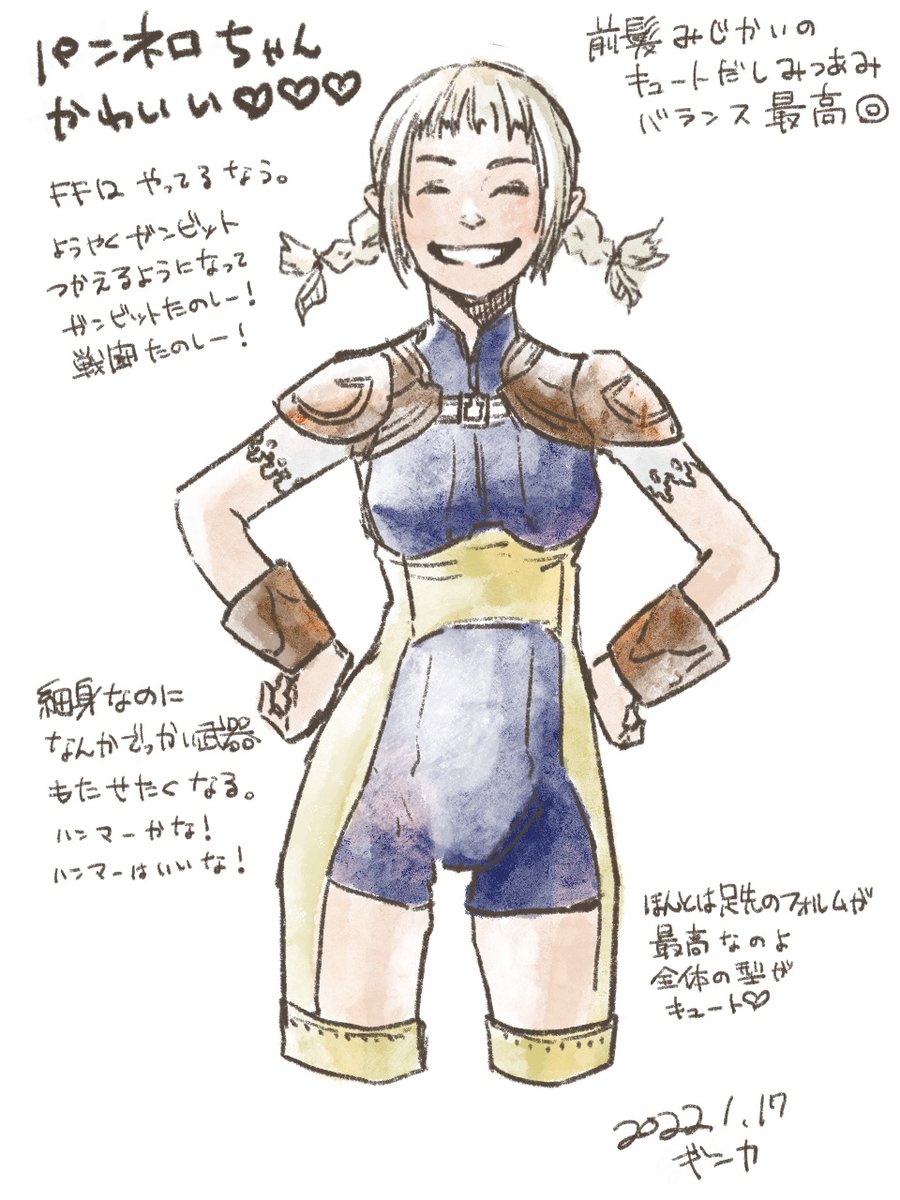 パンネロちゃん
かわいい♡♡♡
前髪みじかいの
キュートだしみつあみ
バランス最高◎
FF12やってるなう。
ようやくガンビット
つかえるようになって
ガンビットたのしー！
戦闘たのしー！
細身なのに
なんかでっかい武器
もたせたくなる。
ハンマーかな！
ハンマーはいいな！
ほんとは足先のフォルムが
最高なのよ
全体の型が
キュート♡
2022.1.17
ギンカ